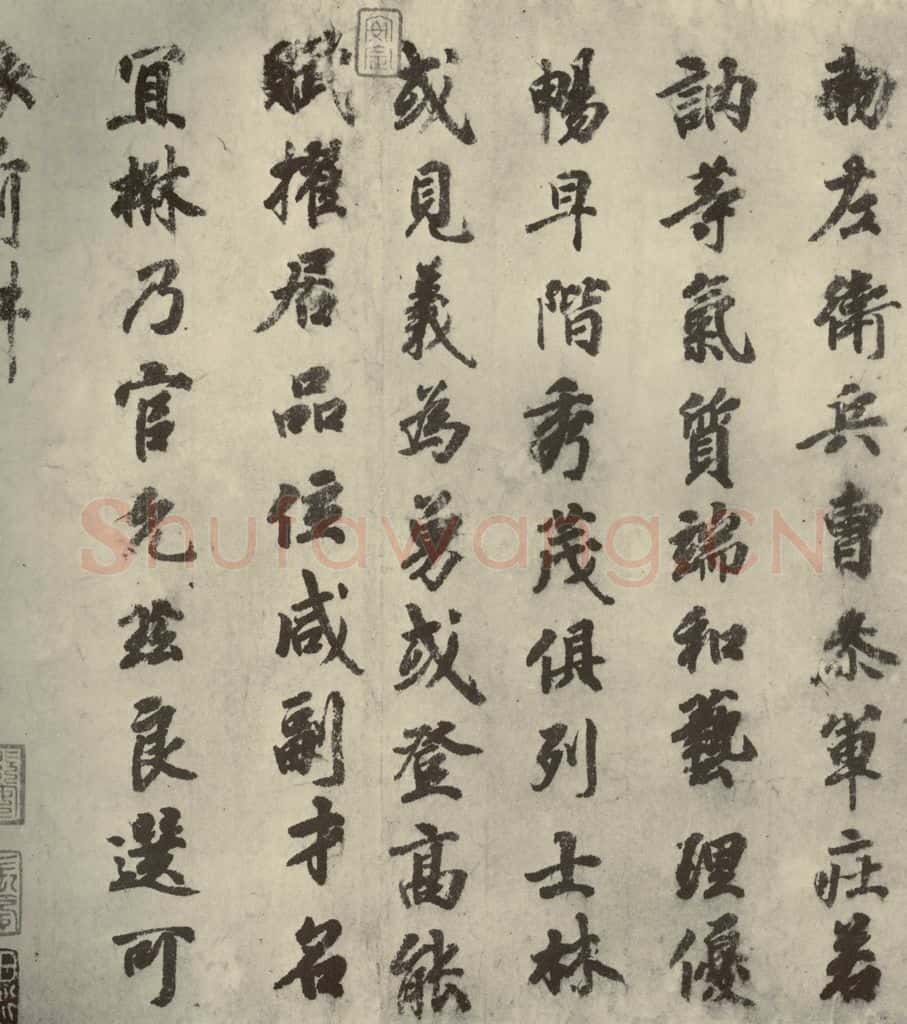 勅左衛兵曹叅軍庄若
訥等氣質端和藝理優
暢早階秀茂俱列士林
或見義為勇或登高能
賦擢居品位咸副才名
宜楙乃官允茲良選可
依前件
Shufawang.CN